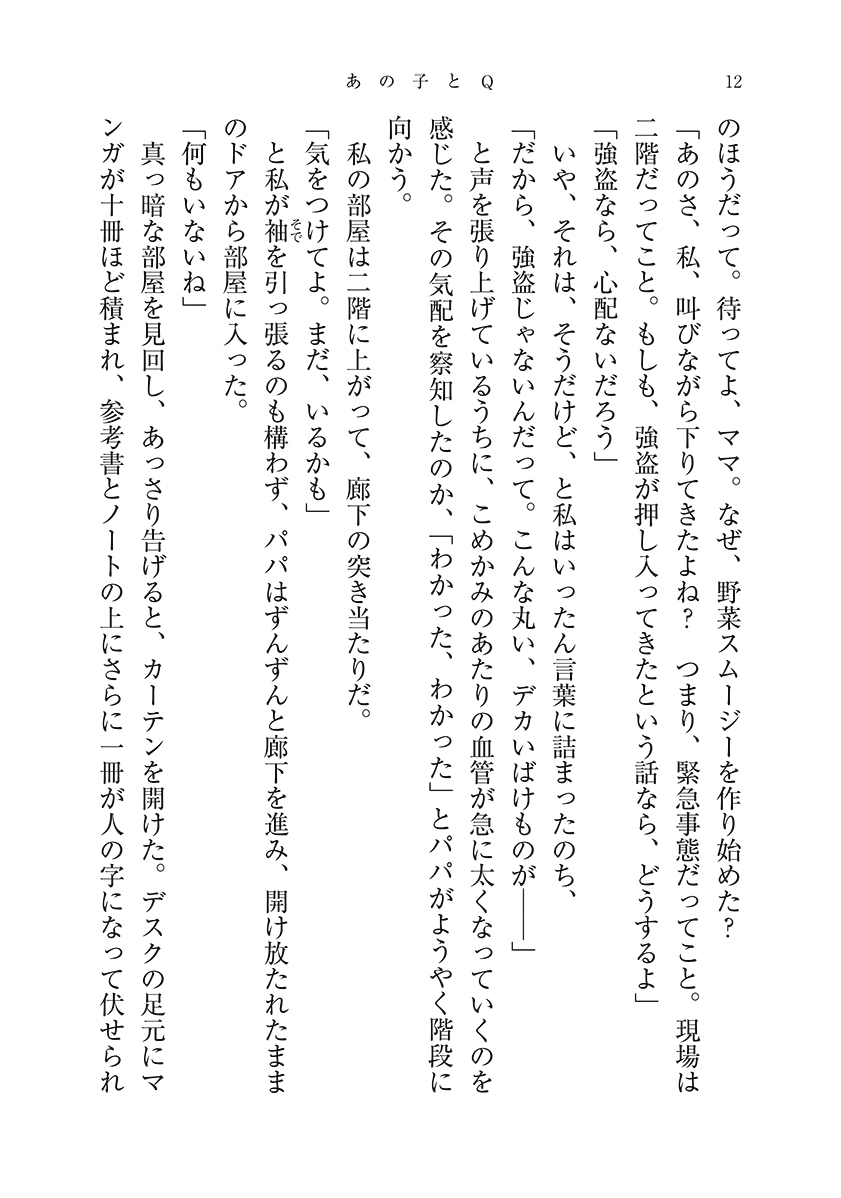 あの子とQ
12
のほうだって。待ってよ、ママ。なぜ、野菜スムージーを作り始めた?
「あのさ、私、叫びながら下りてきたよね?　つまり、緊急事態だってこと。現場は
二階だってこと。もしも、強盗が押し入ってきたという話なら、どうするよ」
「強盗なら、心配ないだろう」
　いや、それは、そうだけど、と私はいったん言葉に詰まったのち、
「だから、強盗じゃないんだって。こんな丸い、デカいばけものが――」
　と声を張り上げているうちに、こめかみのあたりの血管が急に太くなっていくのを
感じた。その気配を察知したのか、「わかった、わかった」とパパがようやく階段に
向かう。
　私の部屋は二階に上がって、廊下の突き当たりだ。
「気をつけてよ。まだ、いるかも」
　と私が袖そでを引っ張るのも構わず、パパはずんずんと廊下を進み、開け放たれたまま
のドアから部屋に入った。
「何もいないね」
　真っ暗な部屋を見回し、あっさり告げると、カーテンを開けた。デスクの足元にマ
ンガが十冊ほど積まれ、参考書とノートの上にさらに一冊が人の字になって伏せられ